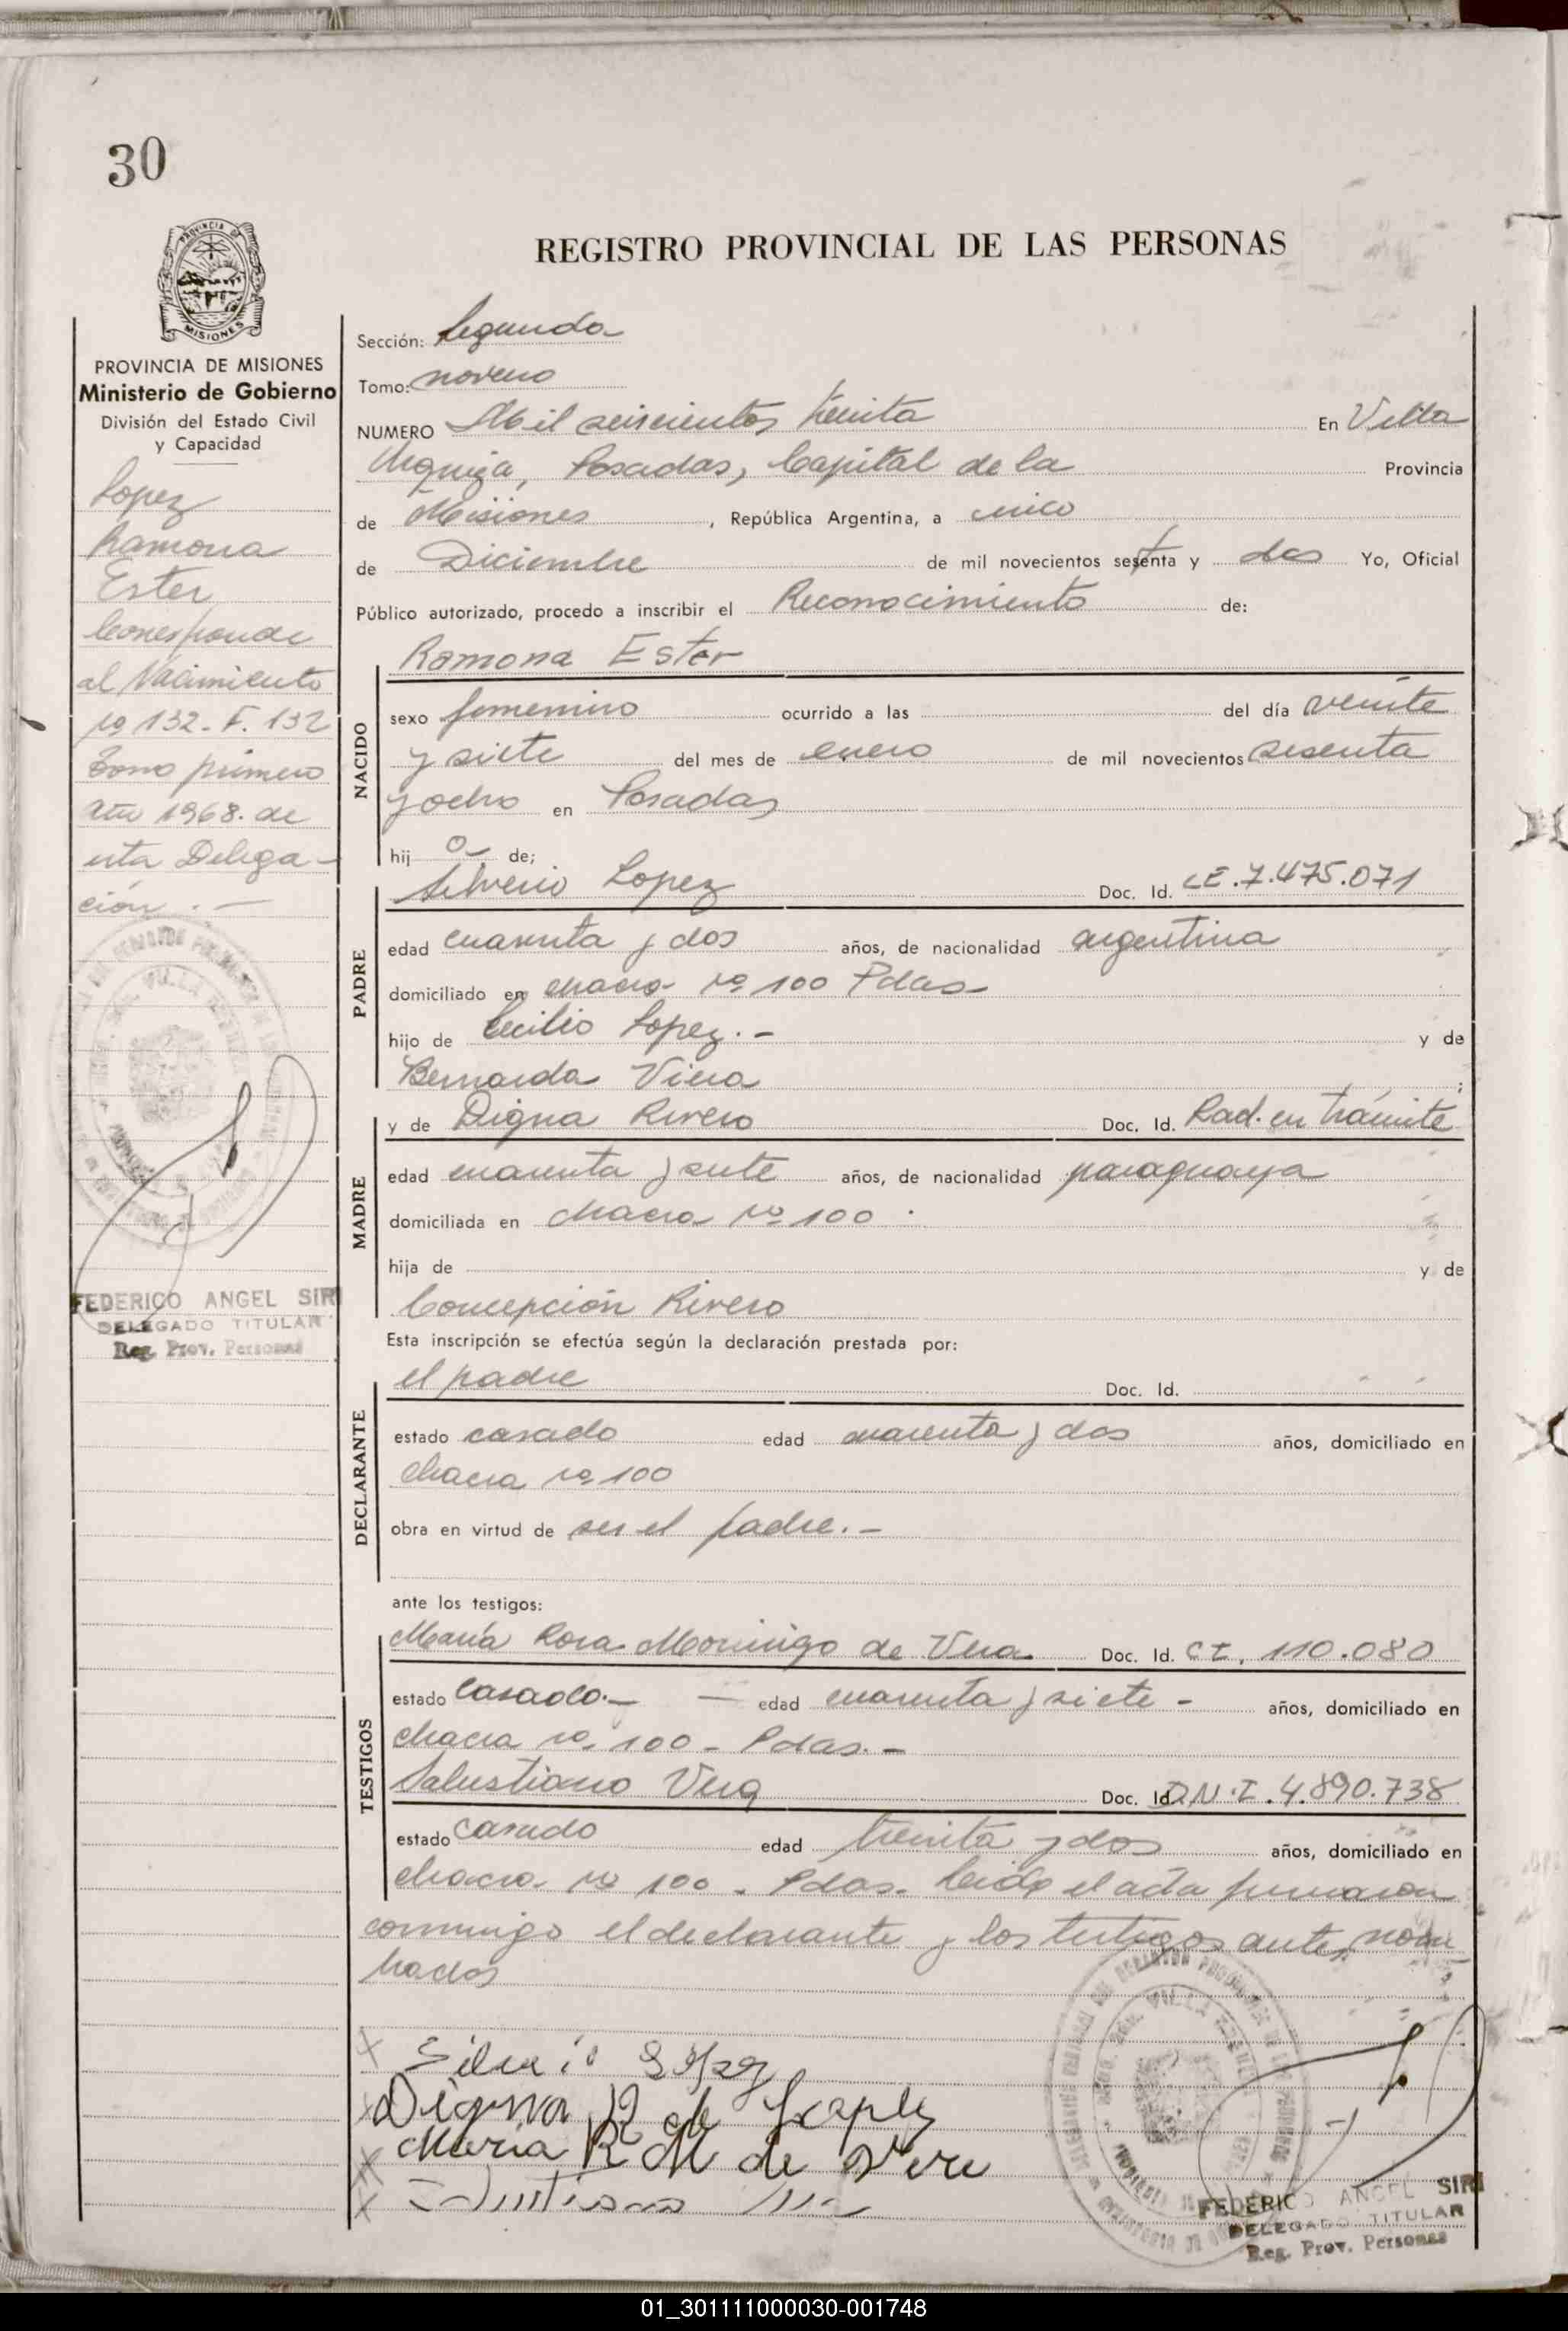 30
PROVINCIA DE MISIONES
MISIONES
PROVINCIA DE MISIONES
Ministerio de Gobierno
División del Estado Civil
y Capacidad
Lopez
Ramona
Ester
Corresponde
al Nacimiento
Nº 132 - F. 132
Tomo primero
año 1968. de
esta Delega-
ción. -
FEDERICO ANGEL SIRI
DELEGADO TITULAR
Reg. Prov. Personas
REGISTRO PROVINCIAL DE LAS PERSONAS
Sección: Segunda
Tomo: noveno
NUMERO Mil seiscientos treinta En Villa
Urquiza, Posadas, Capital de la Provincia
de Misiones, República Argentina, a cinco
de Diciembre de mil novecientos setenta y dos Yo, Oficial
Público autorizado, procedo a inscribir el Reconocimiento de:
NACIDO
Ramona Ester
sexo femenino ocurrido a las del día veinte
y siete del mes de enero de mil novecientos sesenta
y ocho en Posadas
hija de;
PADRE
Silverio Lopez Doc. Id. LE. 7.475.071
edad cuarenta y dos años, de nacionalidad argentina
domiciliado en chacra Nº 100 Pdas-
hijo de Cecilio Lopez. - y de
Bernarda Viera ;
MADRE
y de Digna Rivero Doc. Id. Rad. en trámite
edad cuarenta y siete años, de nacionalidad paraguaya
domiciliada en chacra Nº 100 .
hija de y de
Concepción Rivero
Esta inscripción se efectúa según la declaración prestada por:
DECLARANTE
el padre Doc. Id.
estado casado edad cuarenta y dos años, domiciliado en
chacra Nº 100
obra en virtud de ser el padre. -
ante los testigos:
TESTIGOS
María Rosa Morinigo de Vera Doc. Id. CI. 110.080
estado Casado. - - edad cuarenta y siete - años, domiciliado en
chacra Nº 100 - Pdas. -
Salustiano Vera Doc. Id. D.N.I. 4.890.738
estado Casado edad treinta y dos años, domiciliado en
chacra Nº 100 - Pdas. Leido el acta firmaron
conmigo el declarante y los testigos antes nom
brados
Silverio Lopez
Digna R de Lopez
Maria R M de Vera
Salustiano
FEDERICO ANGEL SIRI
DELEGADO TITULAR
Reg. Prov. Personas
01_301111000030-001748